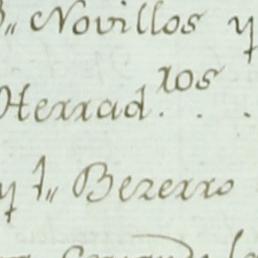 " Novillos y
Herrad.ros . .
y 1" Bezerro